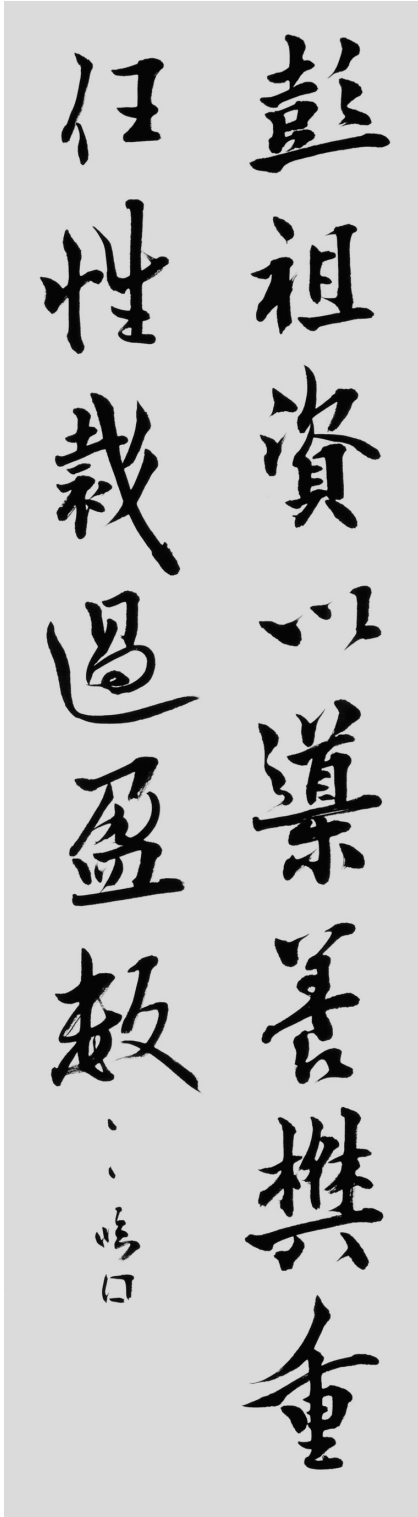 彭祖資以導養樊重
任性裁過盈數